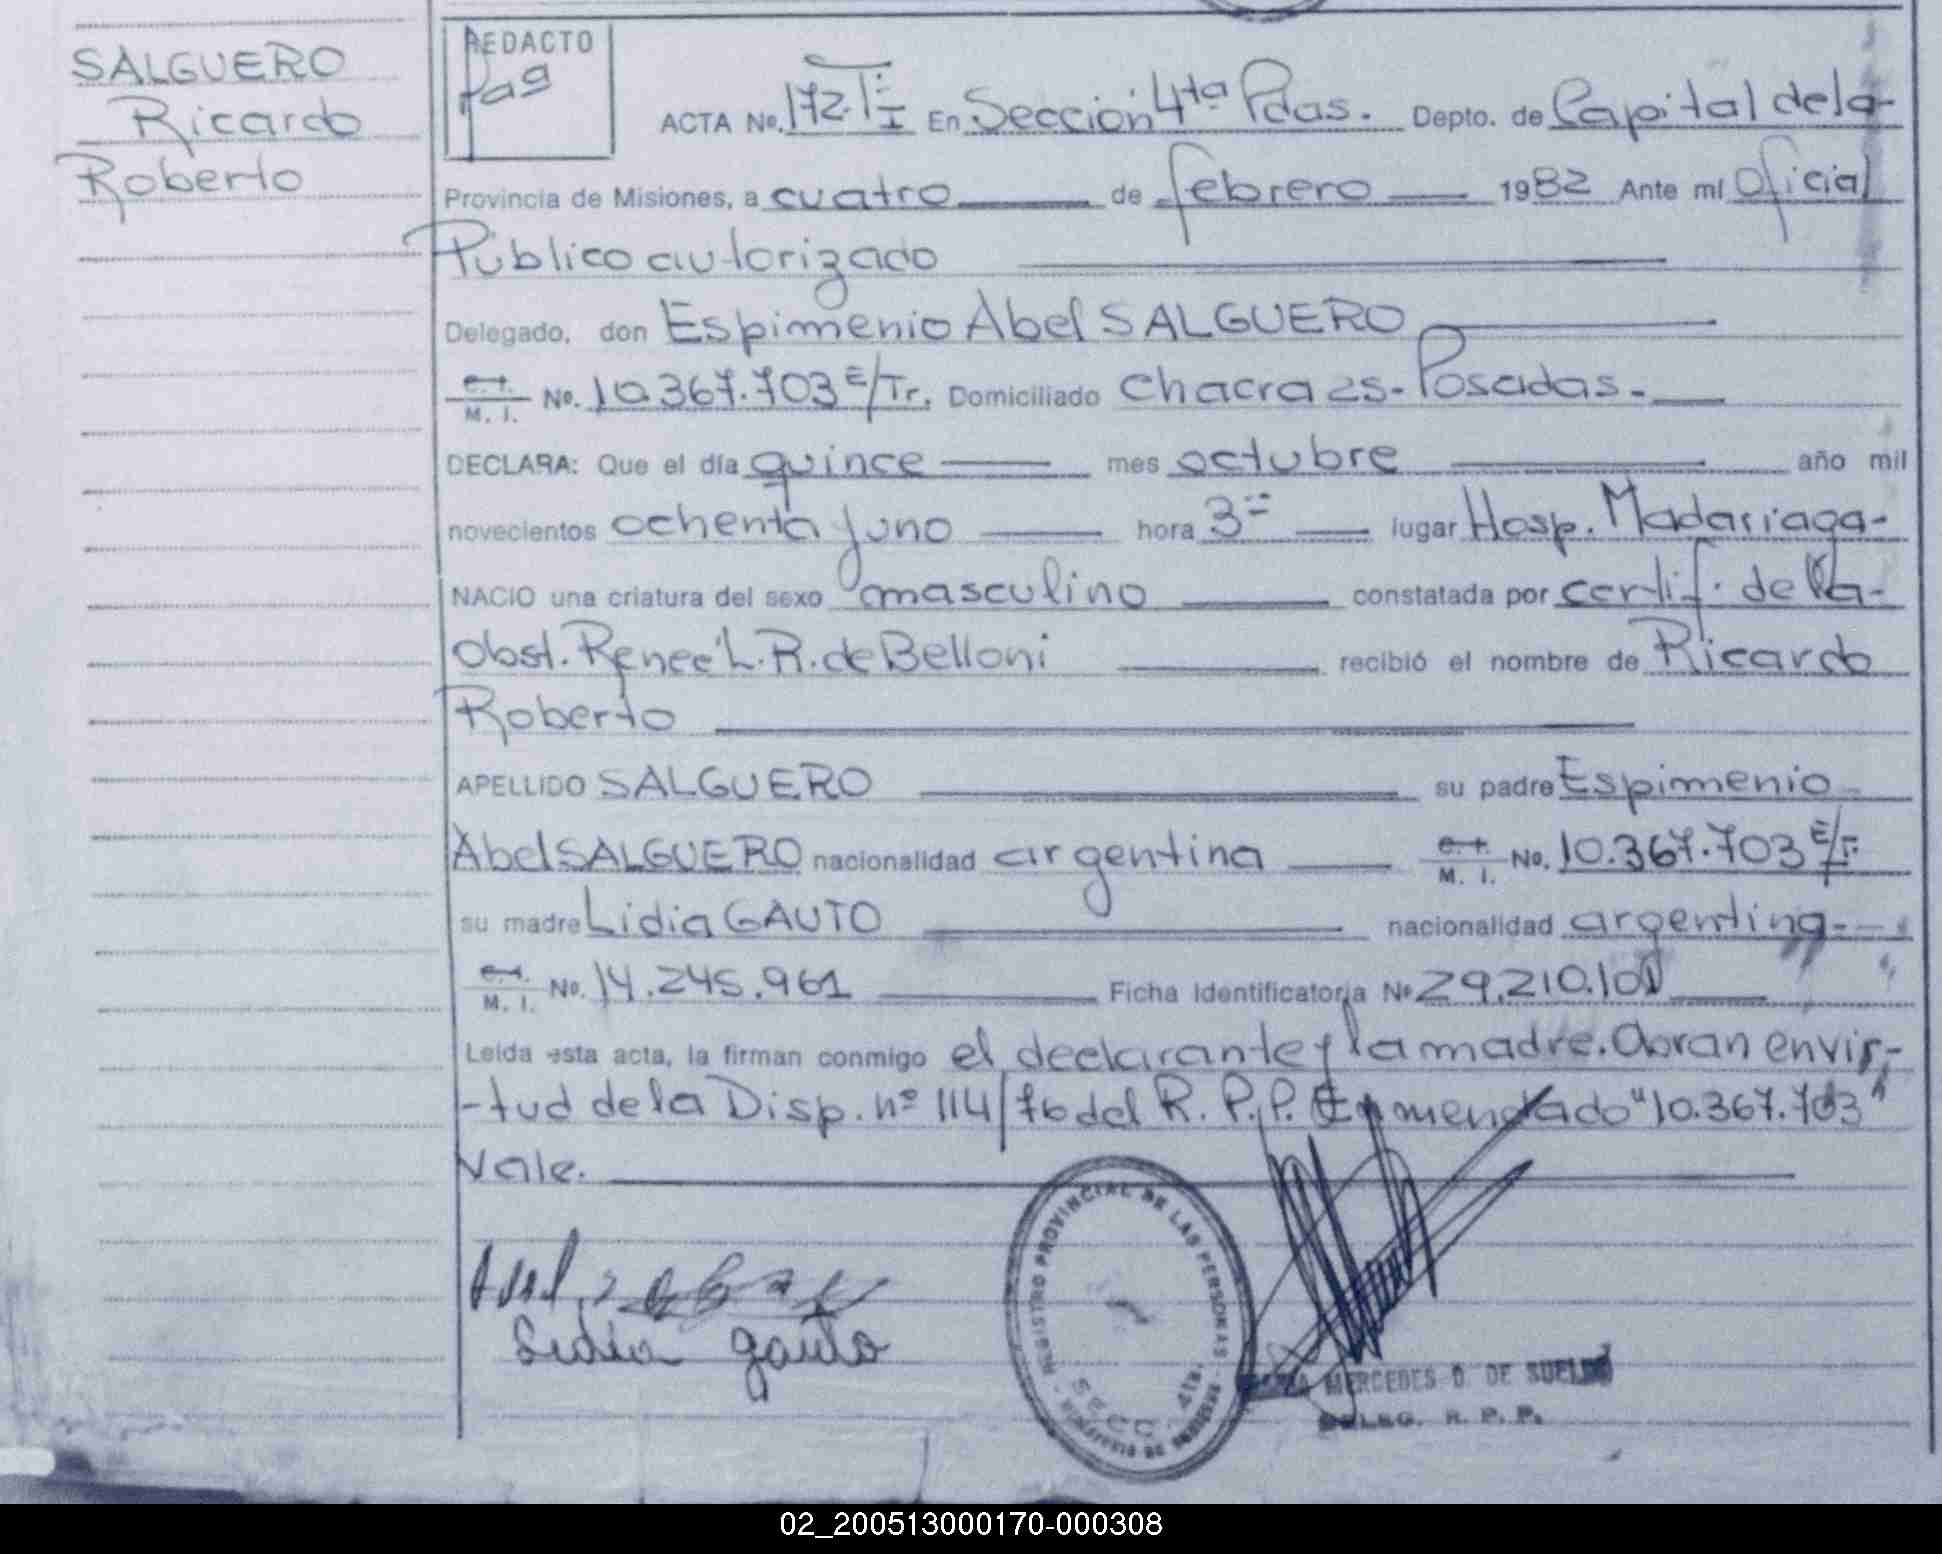 SALGUERO
Ricardo
Roberto
REDACTO
ACTA No. 172. T I En Sección 4ta Pdas. Depto. de Capital de la-
Provincia de Misiones, a cuatro de febrero 1982 Ante mí Oficial
Público autorizado
Delegado, don Espimenio Abel SALGUERO
C.I. M. I. No. 10.367.703 E/Tr. Domiciliado Chacra 25- Posadas.-
DECLARA: Que el día quince mes octubre año mil
novecientos ochenta y uno hora 3 lugar Hosp. Madariaga-
NACIO una criatura del sexo masculino constatada por certif. de la-
Obst. Reneé L. R. de Belloni recibió el nombre de Ricardo
Roberto
APELLIDO SALGUERO su padre Espimenio
Abel SALGUERO nacionalidad argentina C.I. M. I. No. 10.367.703 E/Tr.
su madre Lidia GAUTO nacionalidad argentina-
C.I. M. I. No. 14.245.961 Ficha Identificatoria No 29.210.101
Leída esta acta, la firman conmigo el declarante y la madre. Obran en vir-
-tud de la Disp. nº 114/76 del R. P. P. Enmendado "10.367.703"
Vale.
Lidia gauto
REGISTRO PROVINCIAL DE LAS PERSONAS
SECC. 4ta.
MERCEDES D. DE SUELDO
DELEG. R. P. P.
02_200513000170-000308